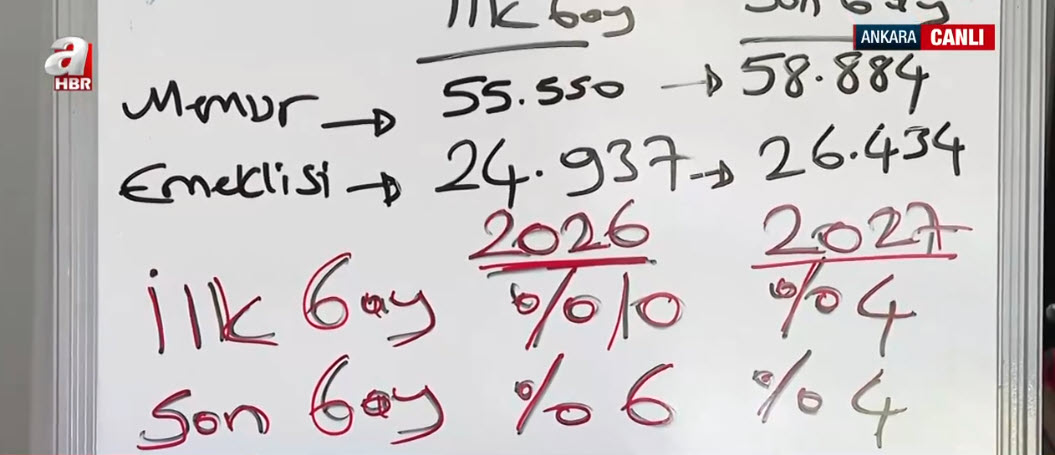 ilk 6ay son 6ay
a
HBR
ANKARA CANLI
Memur → 55.550 → 58.884
Emeklisi → 24.937 → 26.434
2026 2027
ilk 6ay %10 %4
son 6ay %6 %4